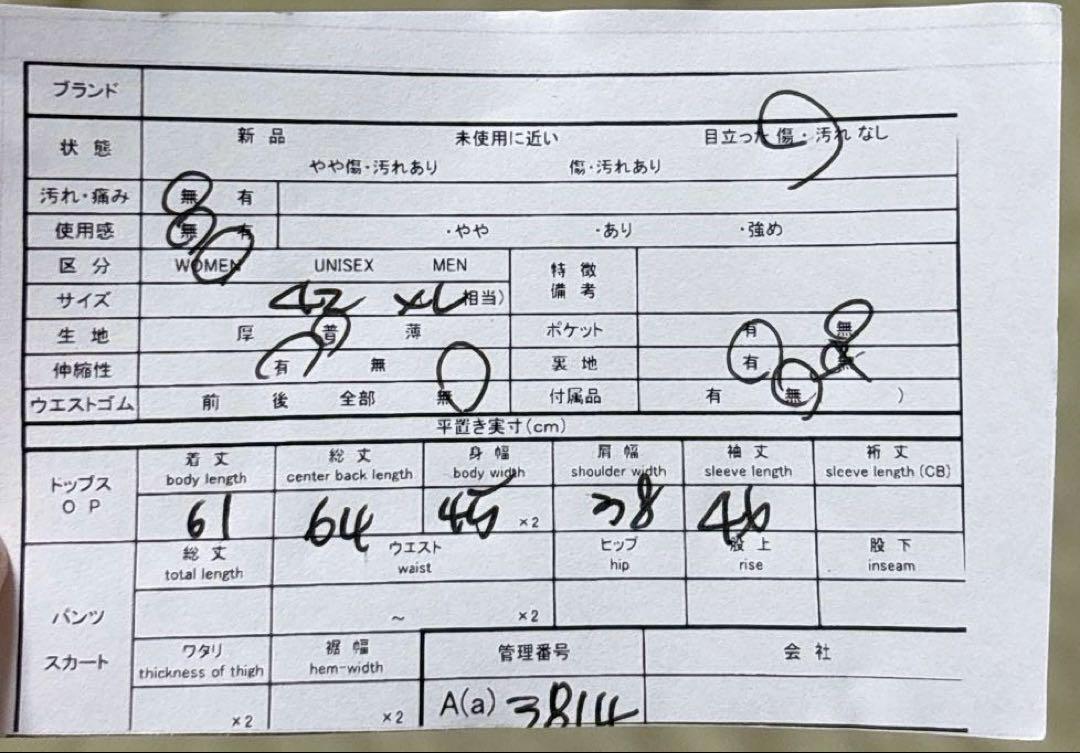 ブランド
状態 新品 未使用に近い 目立った傷・汚れなし
やや傷・汚れあり 傷・汚れあり
汚れ・痛み 無 有
使用感 無 有 ・やや ・あり ・強め
区分 WOMEN UNISEX MEN 特徴
備考
サイズ 42 XL 相当)
生地 厚 普 薄 ポケット 有 無
伸縮性 有 無 裏地 有 無
ウエストゴム 前 後 全部 無 付属品 有 無 )
平置き実寸(cm)
トップス
OP
着丈 総丈 身幅 肩幅 袖丈 裄丈
body length center back length body width shoulder width sleeve length sleeve length (CB)
61 64 45 ×2 38 46
総丈 ウエスト ヒップ 股上 股下
total length waist hip rise inseam
パンツ
スカート
~ ×2
ワタリ 裾幅 管理番号 会社
thickness of thigh hem-width
×2 ×2 A(a) 3814